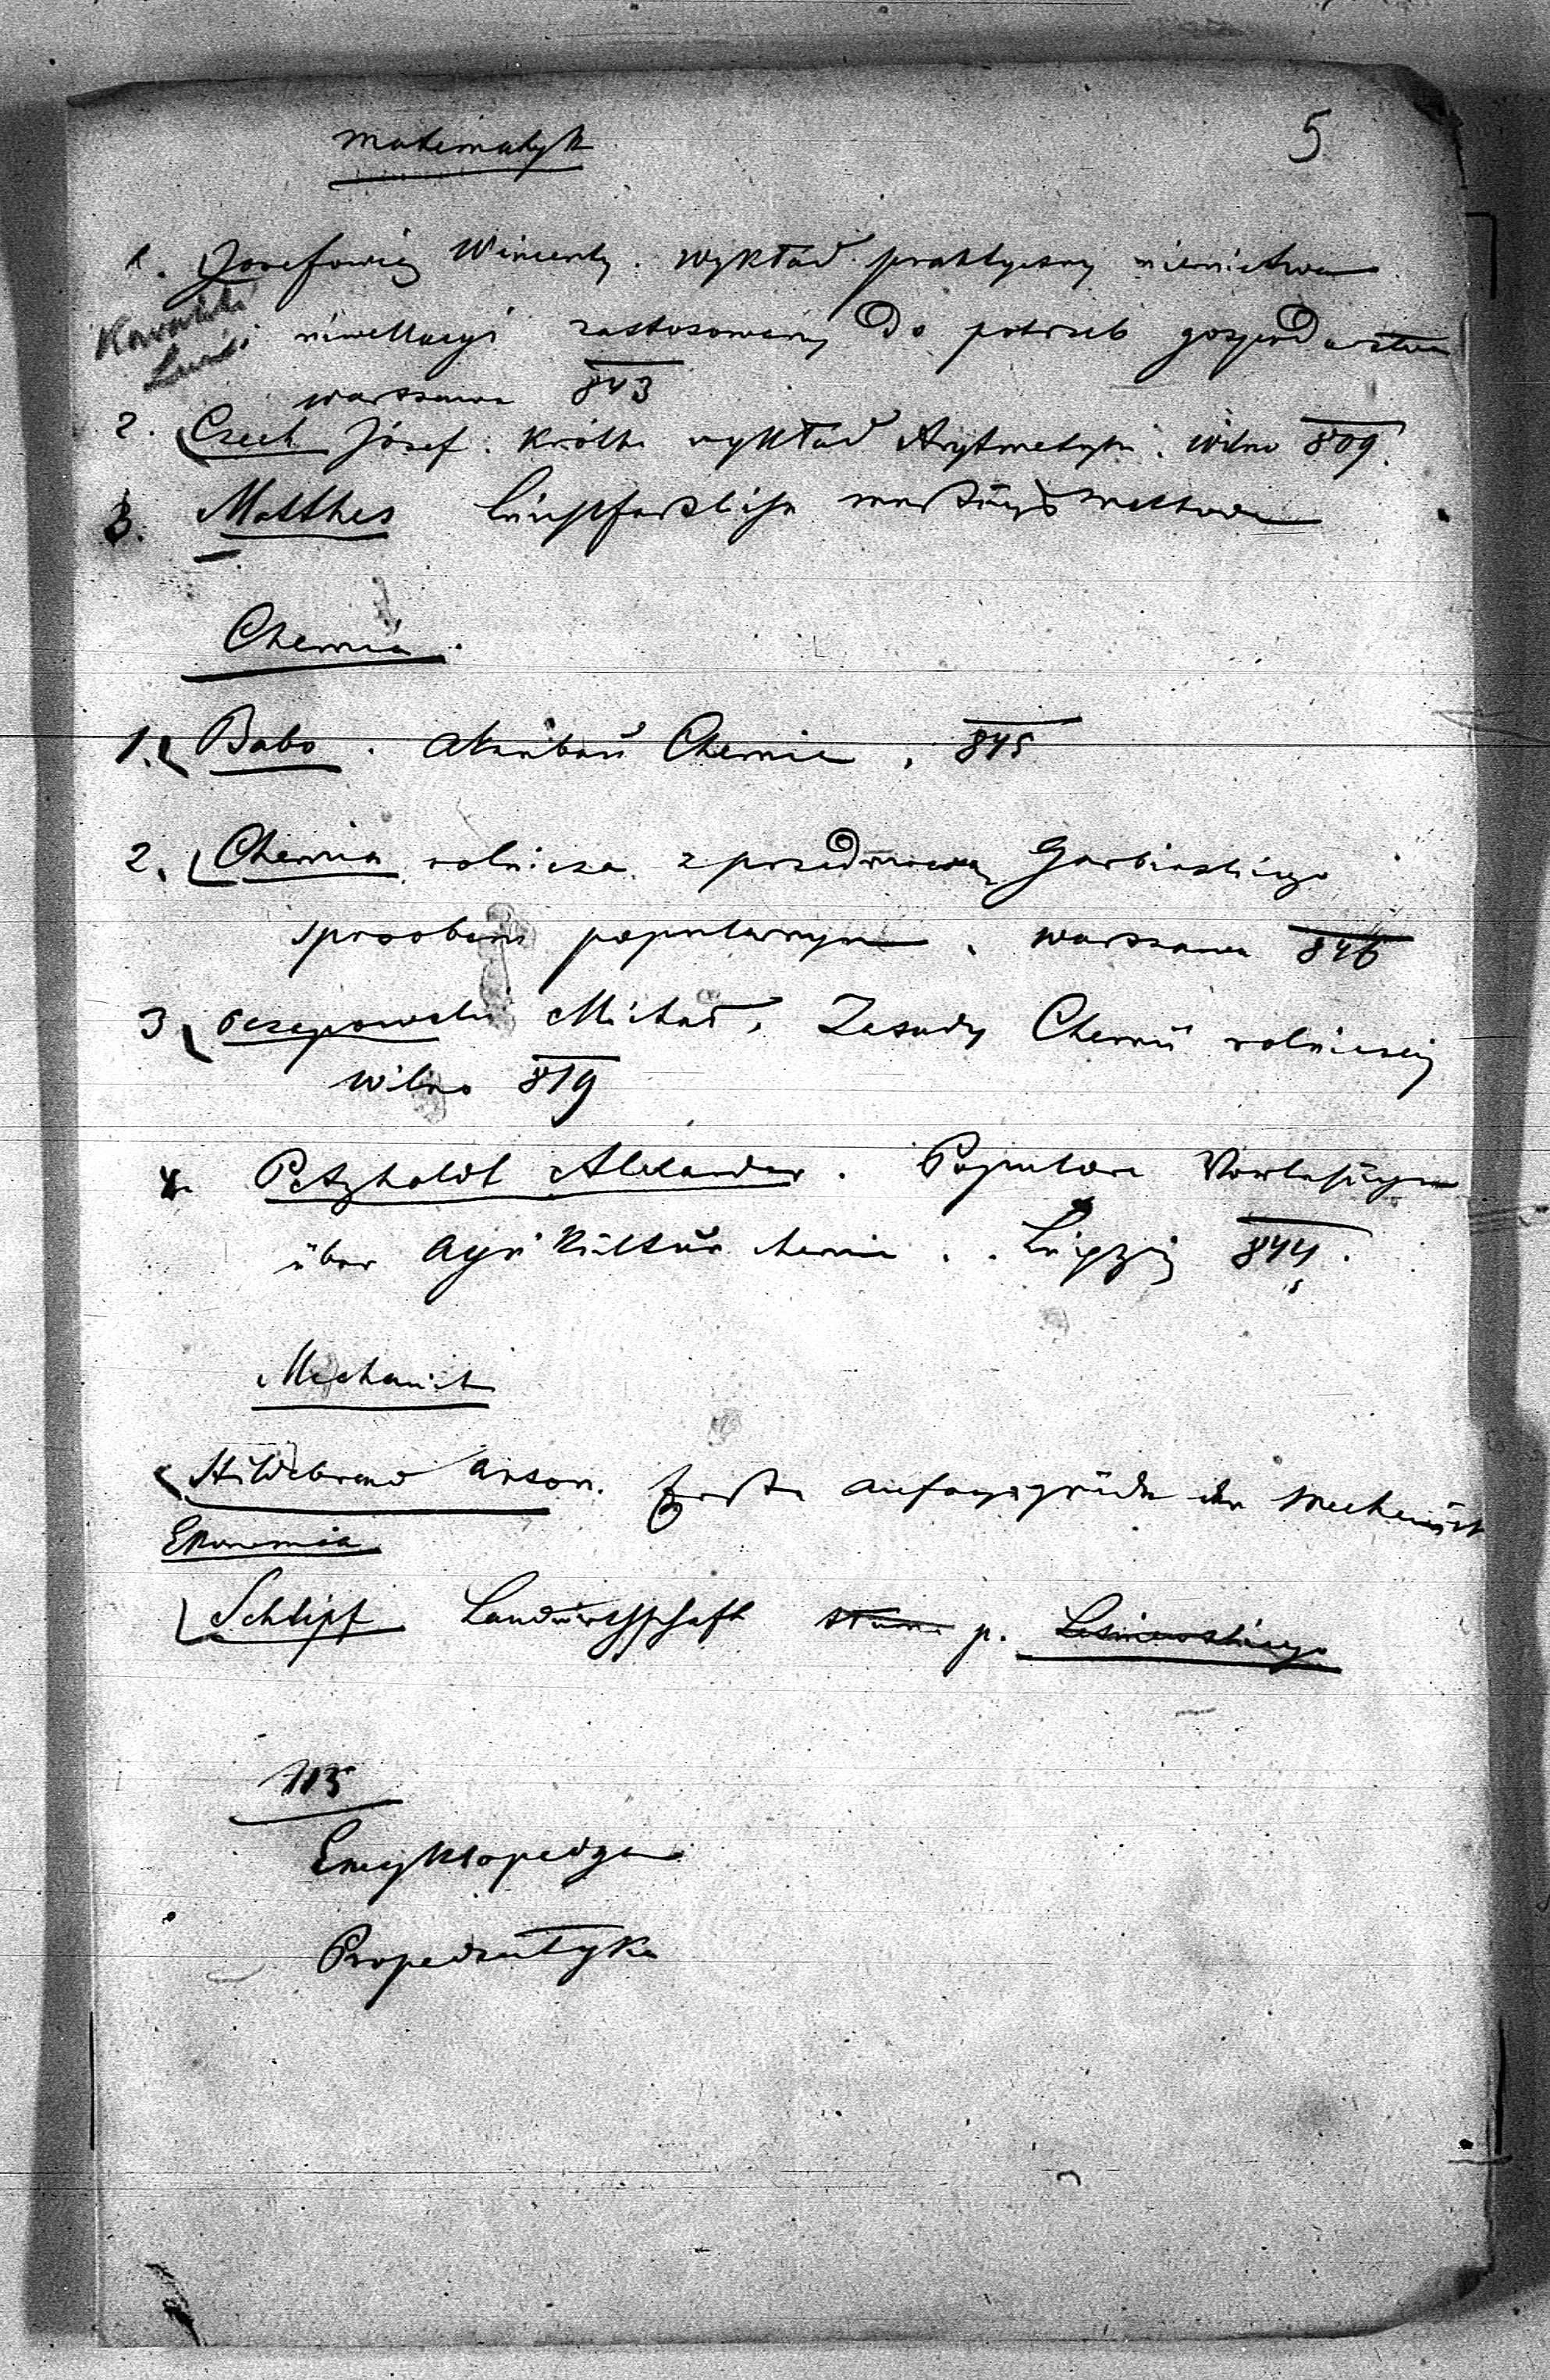 5
Matematyk
1. Josefowicz Wincenty. Wykład praktyczny miernictwa
Kowalski
niwellacyi zastosowany do potrzeb gospodarstwa
Warszawa 843
2. Czech Józef. Krótki wykład Arytmetyki. Wilno 809.
3. Matthes
Chemia.
1. Babo. Ackerbau Chemie, 845
2. Chemia rolnicza z przedmową Garbińskiego
sposobem popularnym, Warszawa 846
3 Oczapowski Michał, Zasady Chemii rolniczej
Wilno 819
4. Petzholdt Alexander. Populäre Vorlesungen
über Agrikultur chemie. Leipzig 844.
Mechanik
Hildebrand Anton. Erste Anfangsgründe der Mechanik
Ekonomia
Schlipf Landwirthschaft p. Leśniewskiego
113
Encyklopedya
Propedeutyka